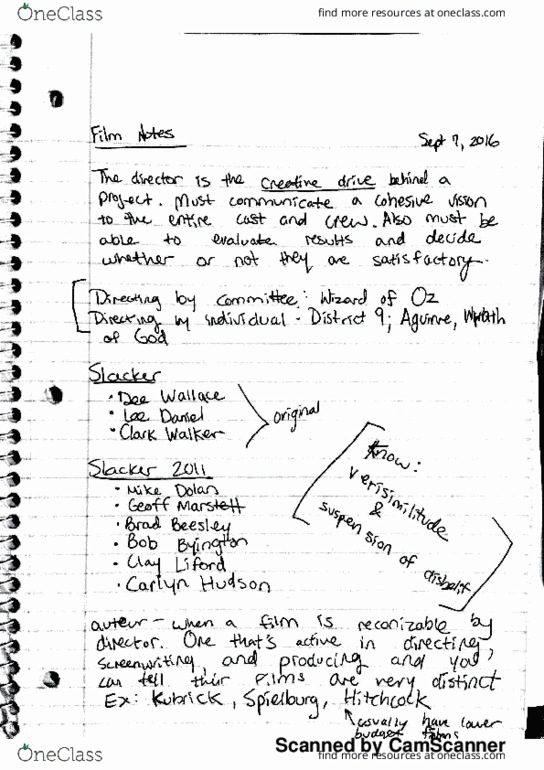 OneClass
find more resources at oneclass.com
Film Notes
Sept 7, 2016
The director is the creative drive behind a
project. Must communicate a cohesive vision
to the entire cast and crew. Also must be
able to evaluate results and decide
whether or not they are satisfactory.
Directing by committee: Wizard of Oz
Directing by individual - District 9; Aguirre, Wrath
of God
Slacker
• Dee Wallace
• Lee Daniel
• Clark Walker
original
Slacker 2011
• Mike Dolan
• Geoff Marslett
• Brad Beesley
• Bob Byington
• Clay Liford
• Carlyn Hudson
Know:
verisimilitude
&
suspension of disbelief
auteur - when a film is reconizable by
director. One that's active in directing,
screenwriting, and producing and you
can tell their films are very distinct
Ex: Kubrick, Spielburg, Hitchcock
usually have lower
budget films
Scanned by CamScanner
OneClass
find more resources at oneclass.com